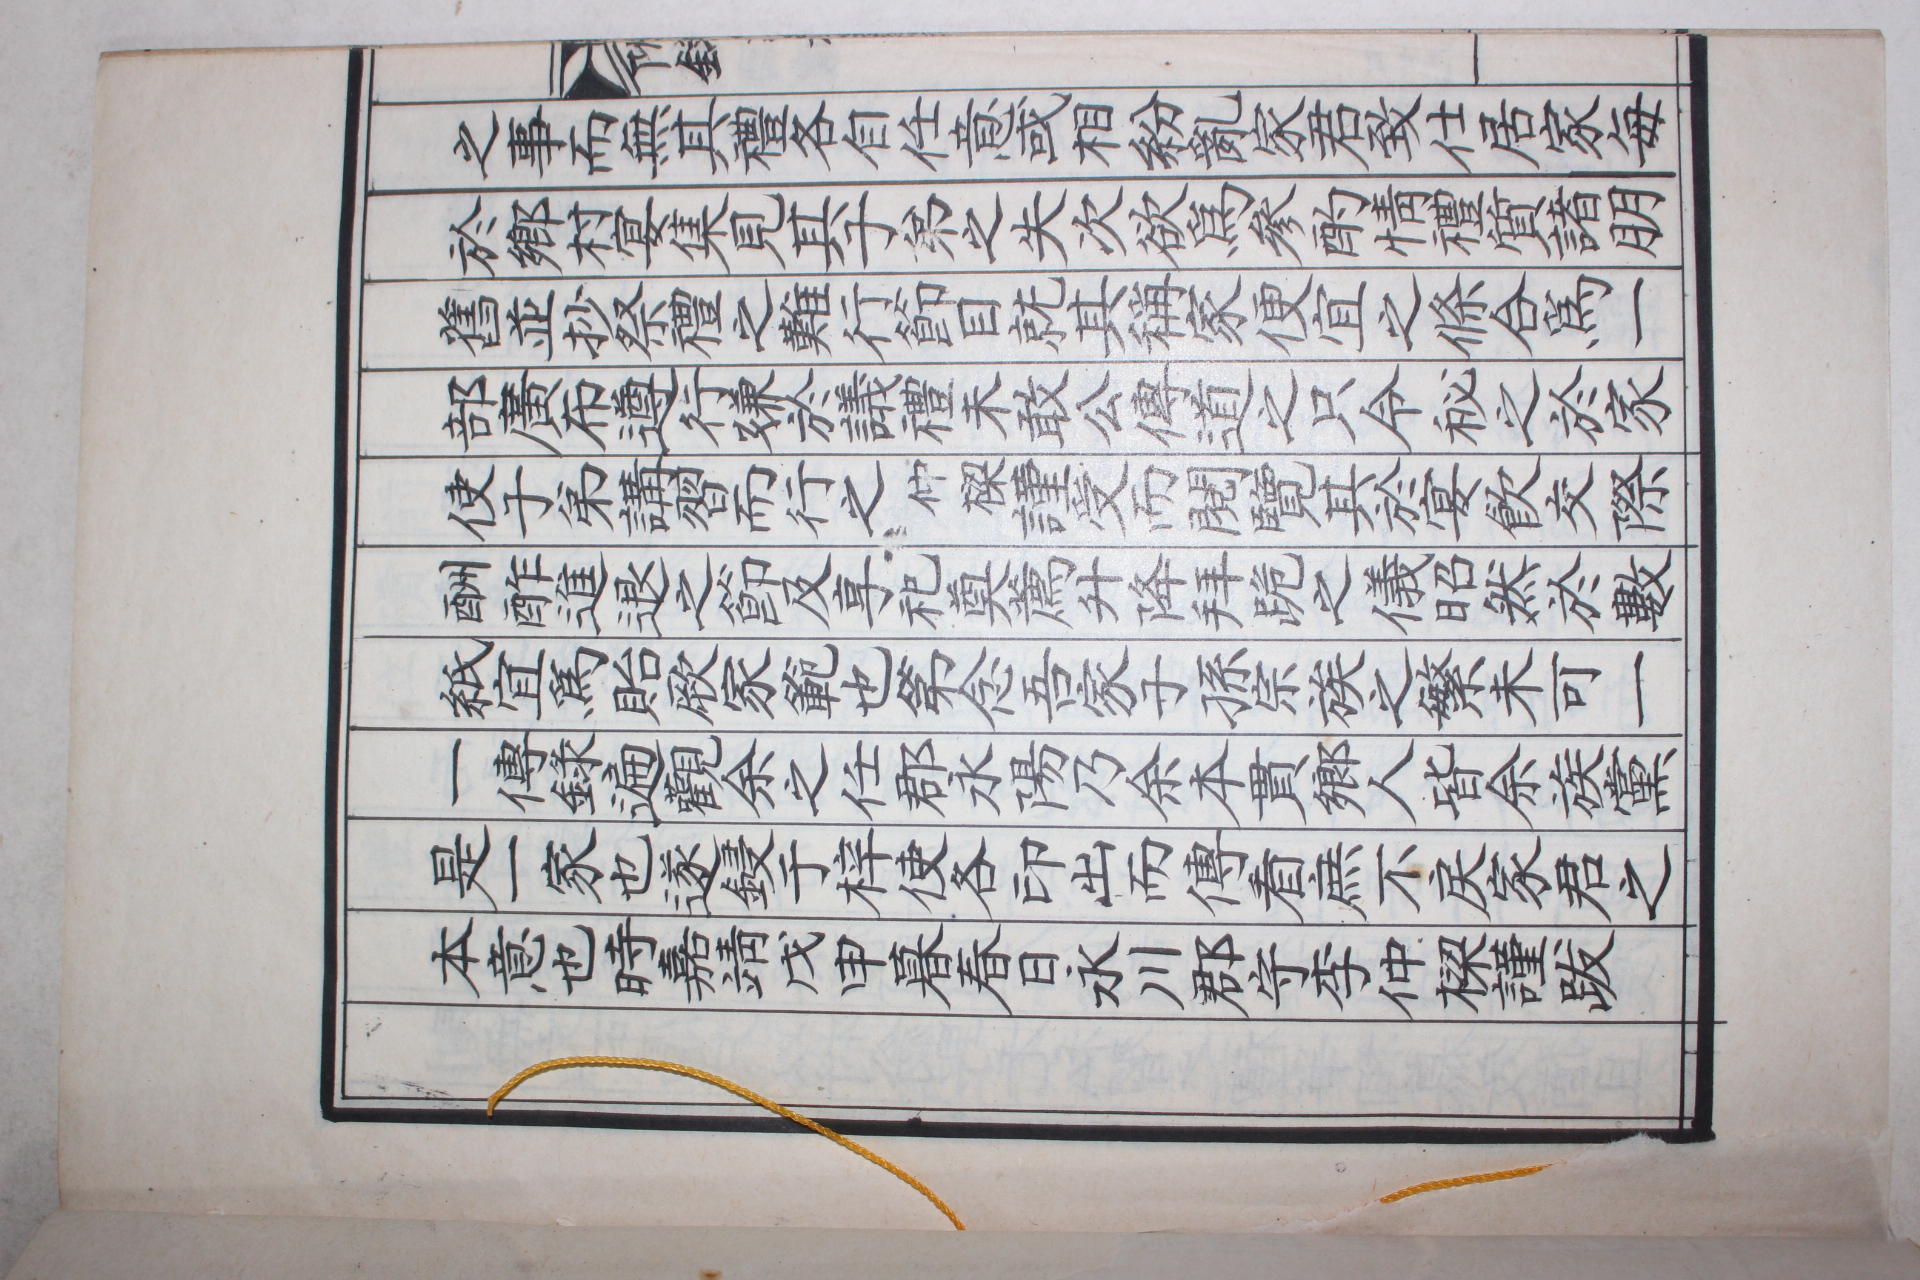 附錄
之事而無其禮各自任意或相紛亂家君致仕居家每
於鄉村宴集見其子弟之失次欲爲參酌情禮質諸朋
舊並抄祭禮之難行節目就其稱家便宜之條合爲一
部廣布遵行嫌於議禮未敢公傳道之只令秘之於家
使子弟講習而行之仲樑謹受而閱覽其於宴飮交際
酬酢進退之節及享祀奠薦升降拜跪之儀昭然於數
紙宜爲貽厥家範也第念吾家子孫宗族之繁未可一
一傳錄遍觀余之任郡永陽乃余本貫鄉人皆余族黨
是一家也遂鋟于梓使各印出而傳看庶不戾家君之
本意也時嘉靖戊申暮春日永川郡守李仲樑謹跋